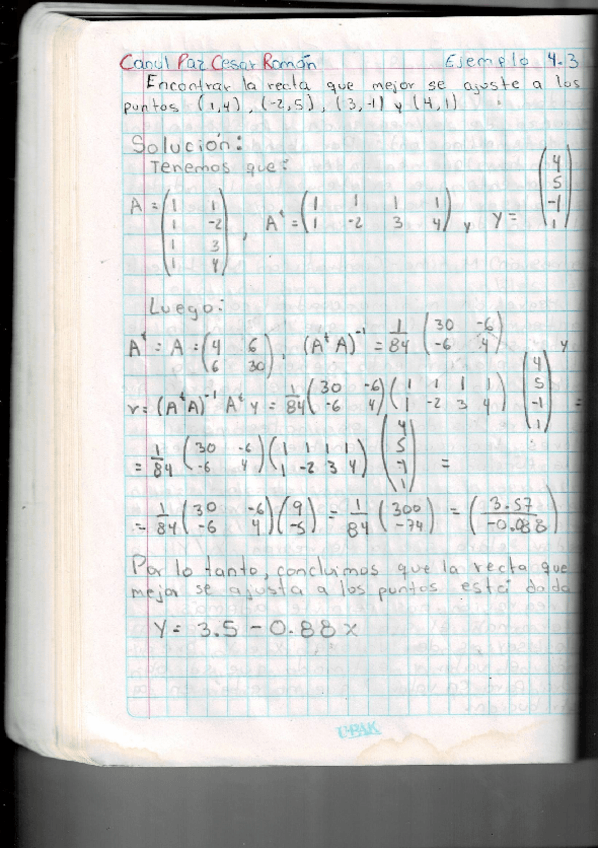 Canul Paz Cesar Román Ejemplo 4.3
Encontrar la recta que mejor se ajuste a los
puntos (1,4), (-2,5), (3,-1) y (4,1)
Solución:
Tenemos que:
A = (1 1 / 1 -2 / 1 3 / 1 4), A^t = (1 1 1 1 / 1 -2 3 4) y Y = (4 / 5 / -1 / 1)
Luego:
A^t = A = (4 6 / 6 30), (A^t A)^-1 = 1/84 (30 -6 / -6 4) y
v = (A^t A)^-1 A^t y = 1/84 (30 -6 / -6 4) (1 1 1 1 / 1 -2 3 4) (4 / 5 / -1 / 1) =
= 1/84 (30 -6 / -6 4) (1 1 1 1 / 1 -2 3 4) (4 / 5 / -1 / 1) =
= 1/84 (30 -6 / -6 4) (9 / -5) = 1/84 (300 / -74) = (3.57 / -0.88)
Por lo tanto, concluimos que la recta que
mejor se ajusta a los puntos está dada
Y = 3.5 - 0.88 x